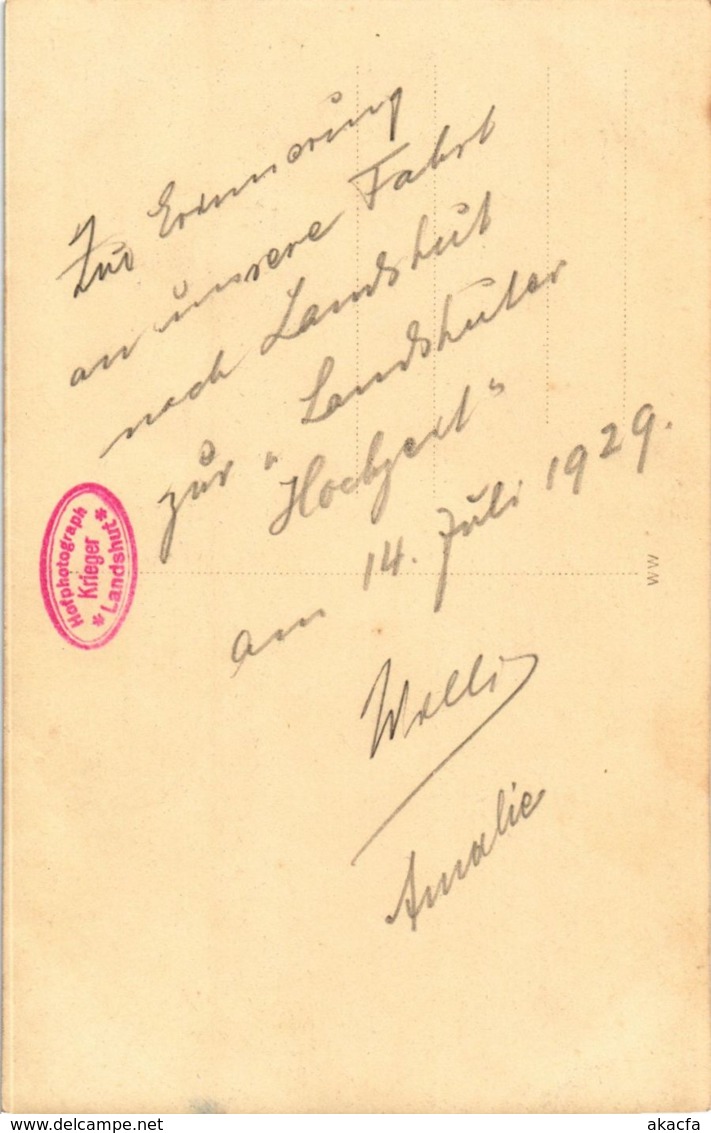 Zur Erinnerung
an unsere Fahrt
nach Landshut
zur „Landshuter
Hochzeit"
am 14. Juli 1929.
Willi
Amalie
Hofphotograph
Krieger
* Landshut *
WW
delcampe.net
akacfa